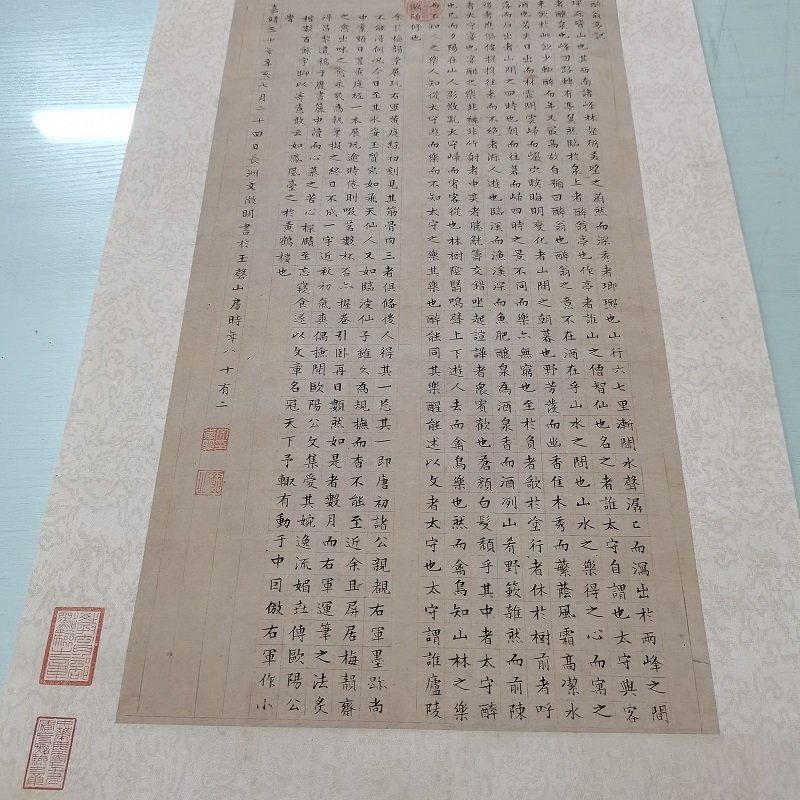 醉翁亭記
環滁皆山也其西南諸峰林壑尤美望之蔚然而深秀者瑯琊也山行六七里漸聞水聲潺〻而瀉出於兩峰之間
者釀泉也峰回路轉有亭翼然臨於泉上者醉翁亭也作亭者誰山之僧智仙也名之者誰太守自謂也太守與客
來飲於此飲少輒醉而年又最高故自號曰醉翁也醉翁之意不在酒在乎山水之間也山水之樂得之心而寓之
酒也若夫日出而林霏開雲歸而巖穴暝晦明變化者山間之朝暮也野芳發而幽香佳木秀而蘩蔭風霜高潔水
落而石出者山間之四時也朝而往暮而歸四時之景不同而樂亦無窮也至於負者歌於塗行者休於樹前者呼
後者應傴僂提攜往來而不絕者滁人遊也臨溪而漁溪深而魚肥釀泉為酒泉香而酒冽山肴野蔌雜然而前陳
者太守宴也宴酣之樂非絲非竹射者中奕者勝觥籌交錯坐起諠譁者眾賓歡也蒼顏白髮頹乎其中者太守醉
也已而夕陽在山人影散亂太守歸而賓客從也林樹陰翳鳴聲上下遊人去而禽鳥樂也然而禽鳥知山林之樂
而不知人之樂人知從太守遊而樂而不知太守之樂其樂也醉能同其樂醒能述以文者太守也太守謂誰廬陵
歐陽修也
余於梅韻齋展玩右軍黃庭經初刻見其筋骨肉三者俱備後人得其一忘其一即唐初諸公親覩右軍墨跡尚
不能得何況今日至其水香玉質宛如通天仙人又如臨波仙子雖久為規撫而杳不能至近余且屏居梅韻齋
中案頭日置黃庭經一本展玩逾時倦則啜茗數杯否亦握卷引臥再日數然如是者數月而右軍運筆之法炙
之愈出味之愈永裝為執筆擬之終日不成一字近秋初氣爽偶撿閱歐陽公文集愛其婉逸流媚傳歐陽公
得昌黎遺稿于廢書簏中讀而心慕之苦心探賾至忘寢食遂以文章名冠天下予輒有動于中因倣右軍作小
楷數百餘字聊以寄意敢云如鳳凰臺之於黃鶴樓也
嘉靖三十年辛亥七月二十四日長洲文徵明書於玉磬山房時年八十有二